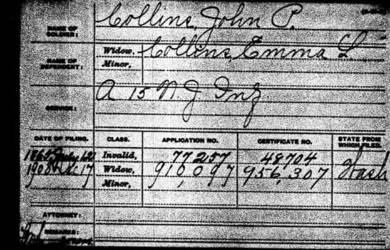 NAME OF SOLDIER: Collins, John P.
NAME OF DEPENDENT: Widow, Collins, Emma L.
Minor,
SERVICE: A 15 N.J. Inf.
DATE OF FILING. CLASS. APPLICATION NO. CERTIFICATE NO. STATE FROM WHICH FILED.
1865 July Invalid, 77257 48704
190 17 Widow, 910,097 956,307 Wash
Minor,
ATTORNEY:
REMARKS: